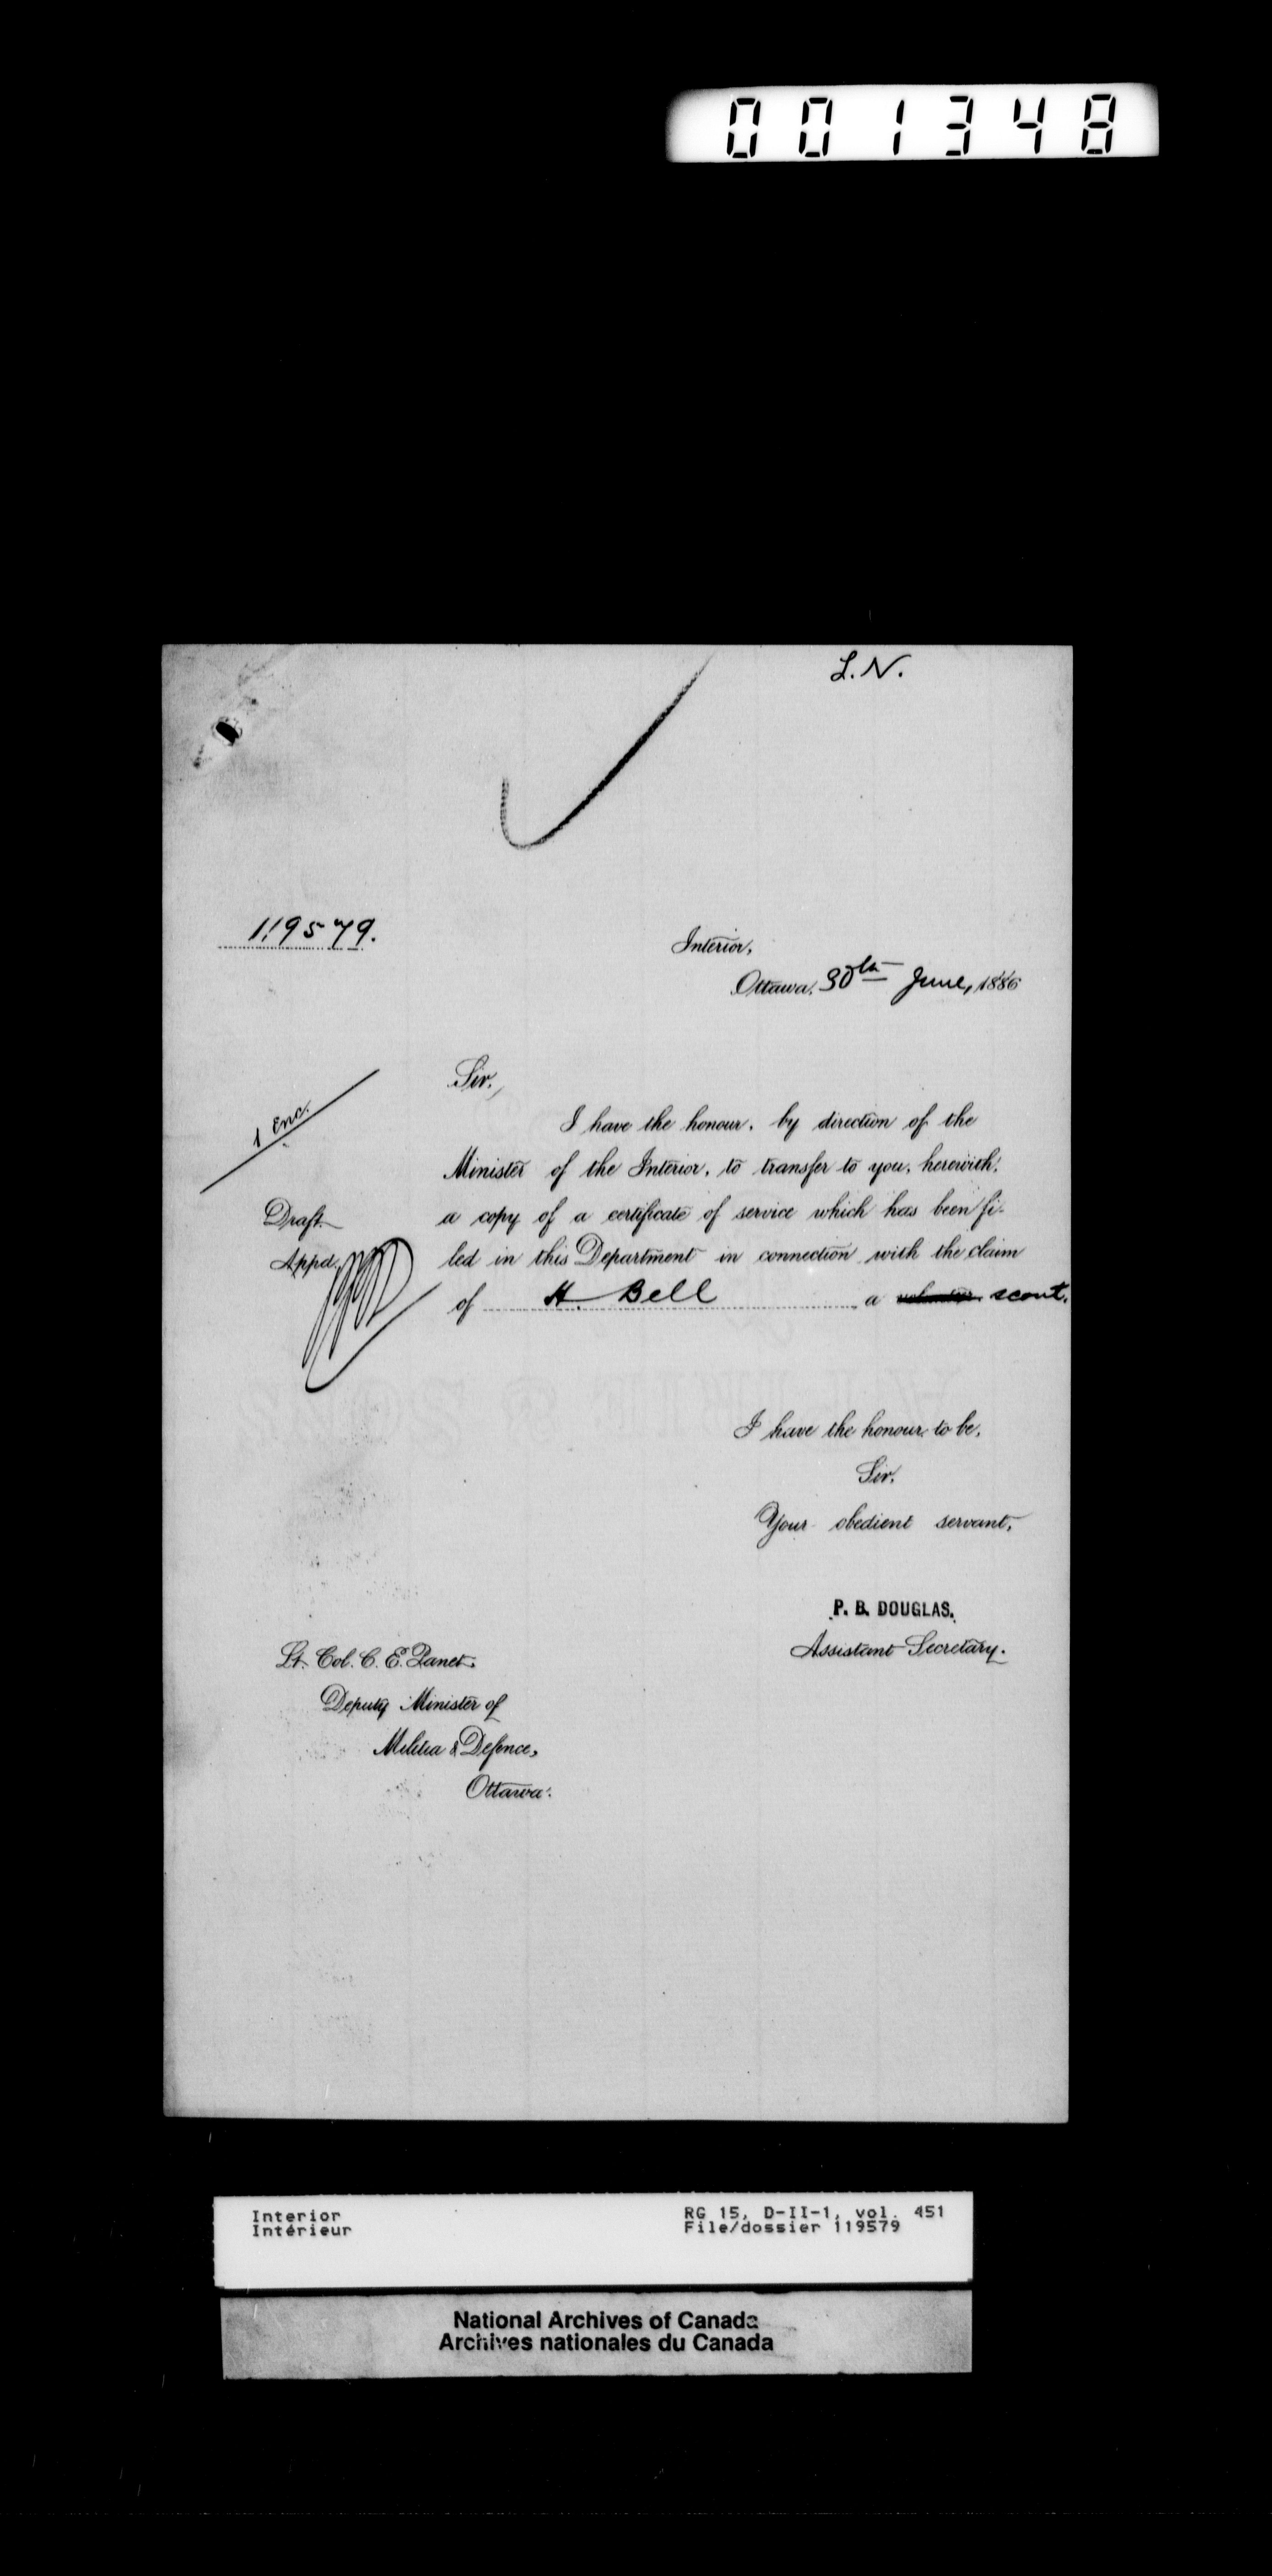 001348
L.N.
119579.
Interior,
Ottawa, 30th June, 1886
Sir,
1 Enc.
I have the honour, by direction of the
Minister of the Interior, to transfer to you, herewith,
Draft
a copy of a certificate of service which has been fi-
Appd.
led in this Department in connection with the claim
of H. Bell a volunteer scout.
I have the honour to be,
Sir,
Your obedient servant,
P. B. DOUGLAS.
Assistant Secretary.
Lt. Col. C. E. Panet,
Deputy Minister of
Militia & Defence,
Ottawa.
Interior
Intérieur
RG 15, D-II-1, vol. 451
File/dossier 119579
National Archives of Canada
Archives nationales du Canada